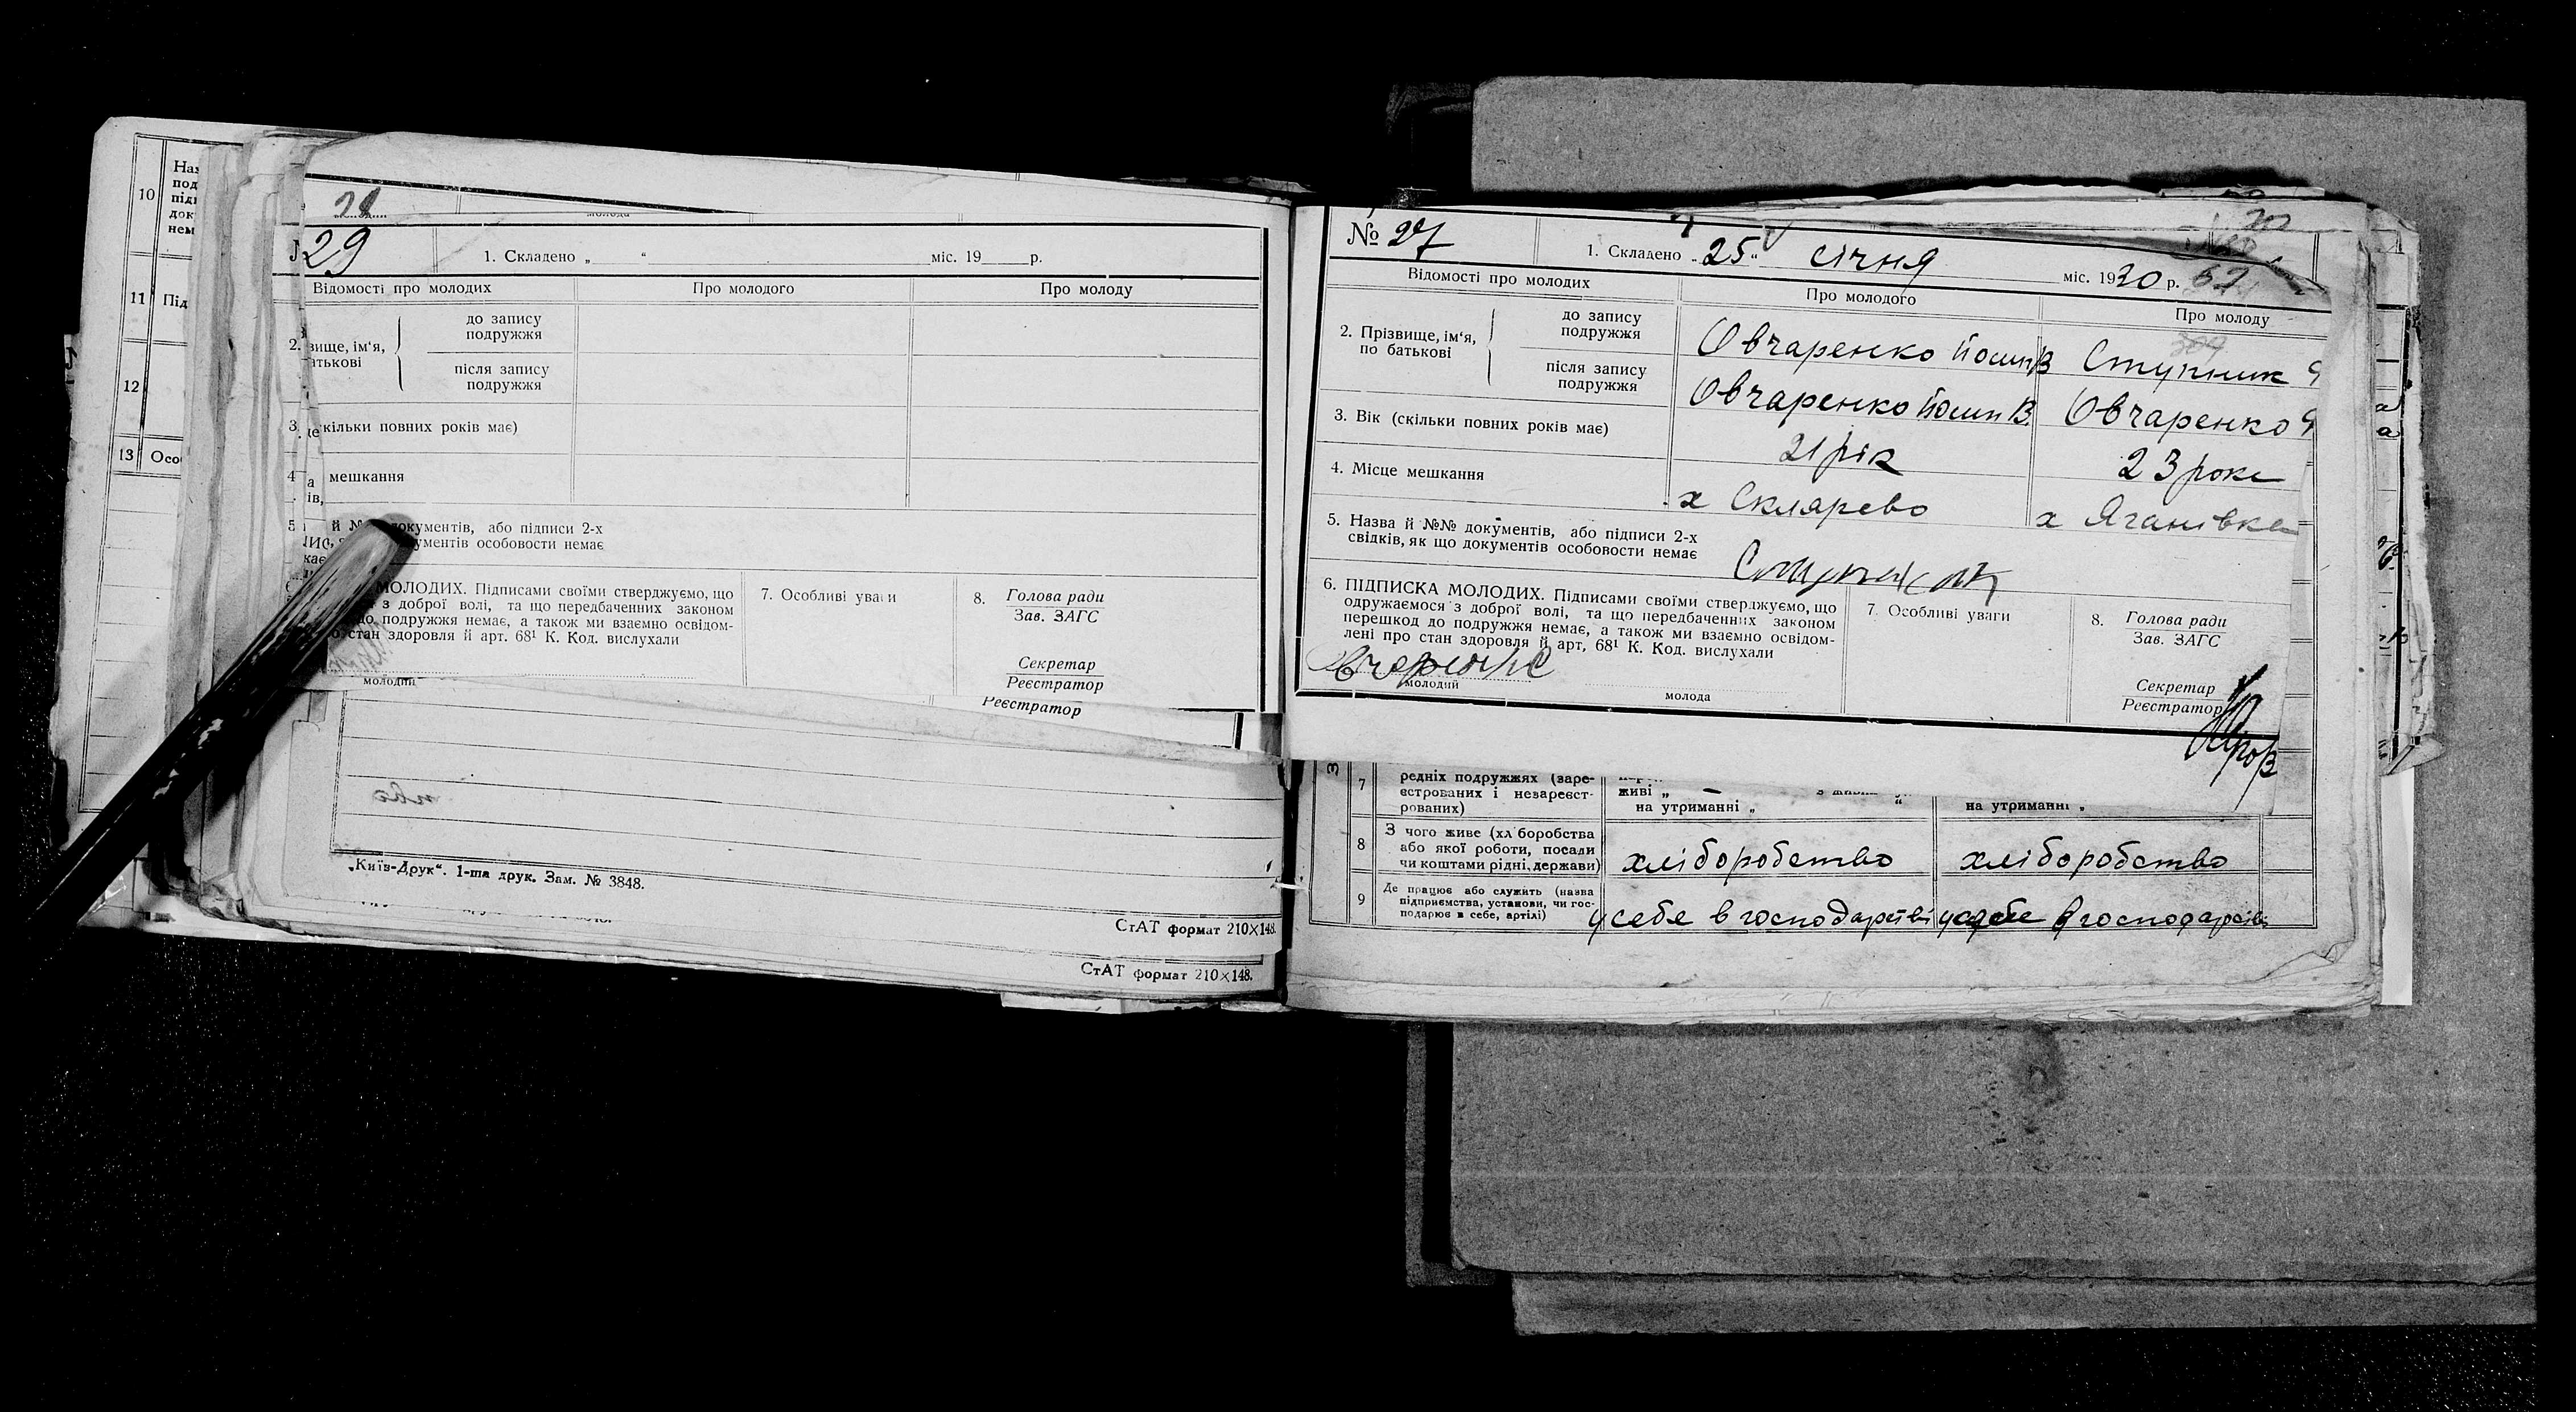 10
11 Під
12
13
29
1. Складено „ “ міс. 19 р.
Відомості про молодих Про молодого Про молоду
2. вище, ім‘я, атькові
до запису подружжя
після запису подружжя
3. кільки повних років має)
4 мешкання
5 й № документів, або підписи 2-х
ументів особовости немає
МОЛОДИХ. Підписами своїми стверджуємо, що
з доброї волі, та що передбаченних законом
до подружжя немає, а також ми взаємно освідом-
стан здоровля й арт. 68¹ К. Код. вислухали
молодий
7. Особливі уваги
8. Голова ради
Зав. ЗАГС
Секретар
Реєстратор
Реєстратор
„Київ-Друк“. 1-ша друк. Зам. № 3848.
СтАТ формат 210×148.
СтАТ формат 210×148.
№ 27
1. Складено „25“ січня міс. 1930 р.
Відомості про молодих Про молодого Про молоду
2. Прізвище, ім‘я, по батькові
до запису подружжя Овчаренко Йосип В Ступник
після запису подружжя Овчаренко Йосип В. Овчаренко
3. Вік (скільки повних років має) 21 рік 23 роки
4. Місце мешкання х Склярево х Яганівка
5. Назва й №№ документів, або підписи 2-х
свідків, як що документів особовости немає
6. ПІДПИСКА МОЛОДИХ. Підписами своїми стверджуємо, що
одружаємося з доброї волі, та що передбаченних законом
перешкод до подружжя немає, а також ми взаємно освідом-
лені про стан здоровля й арт, 68¹ К. Код. вислухали
молодий молода
7. Особливі уваги
8. Голова ради
Зав. ЗАГС
Секретар
Реєстратор
7 редніх подружжях (заре-
єстрованих і незареєст-
рованих)
живі „
на утриманні „ “ на утриманні „
8 З чого живе (хліборобства
або якої роботи, посади
чи коштами рідні, держави)
хліборобство хліборобство
9 Де працює або служить (назва
підприємства, установи, чи гос-
подарює в себе, артілі)
у себе в господарстві у себе в господарстві